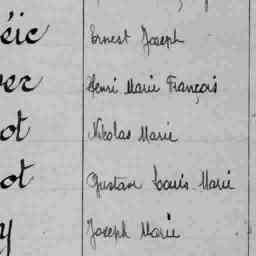 éic Ernest Joseph
ver Henri Marie François
ot Nicolas Marie
ot Gustave Louis Marie
y Joseph Marie